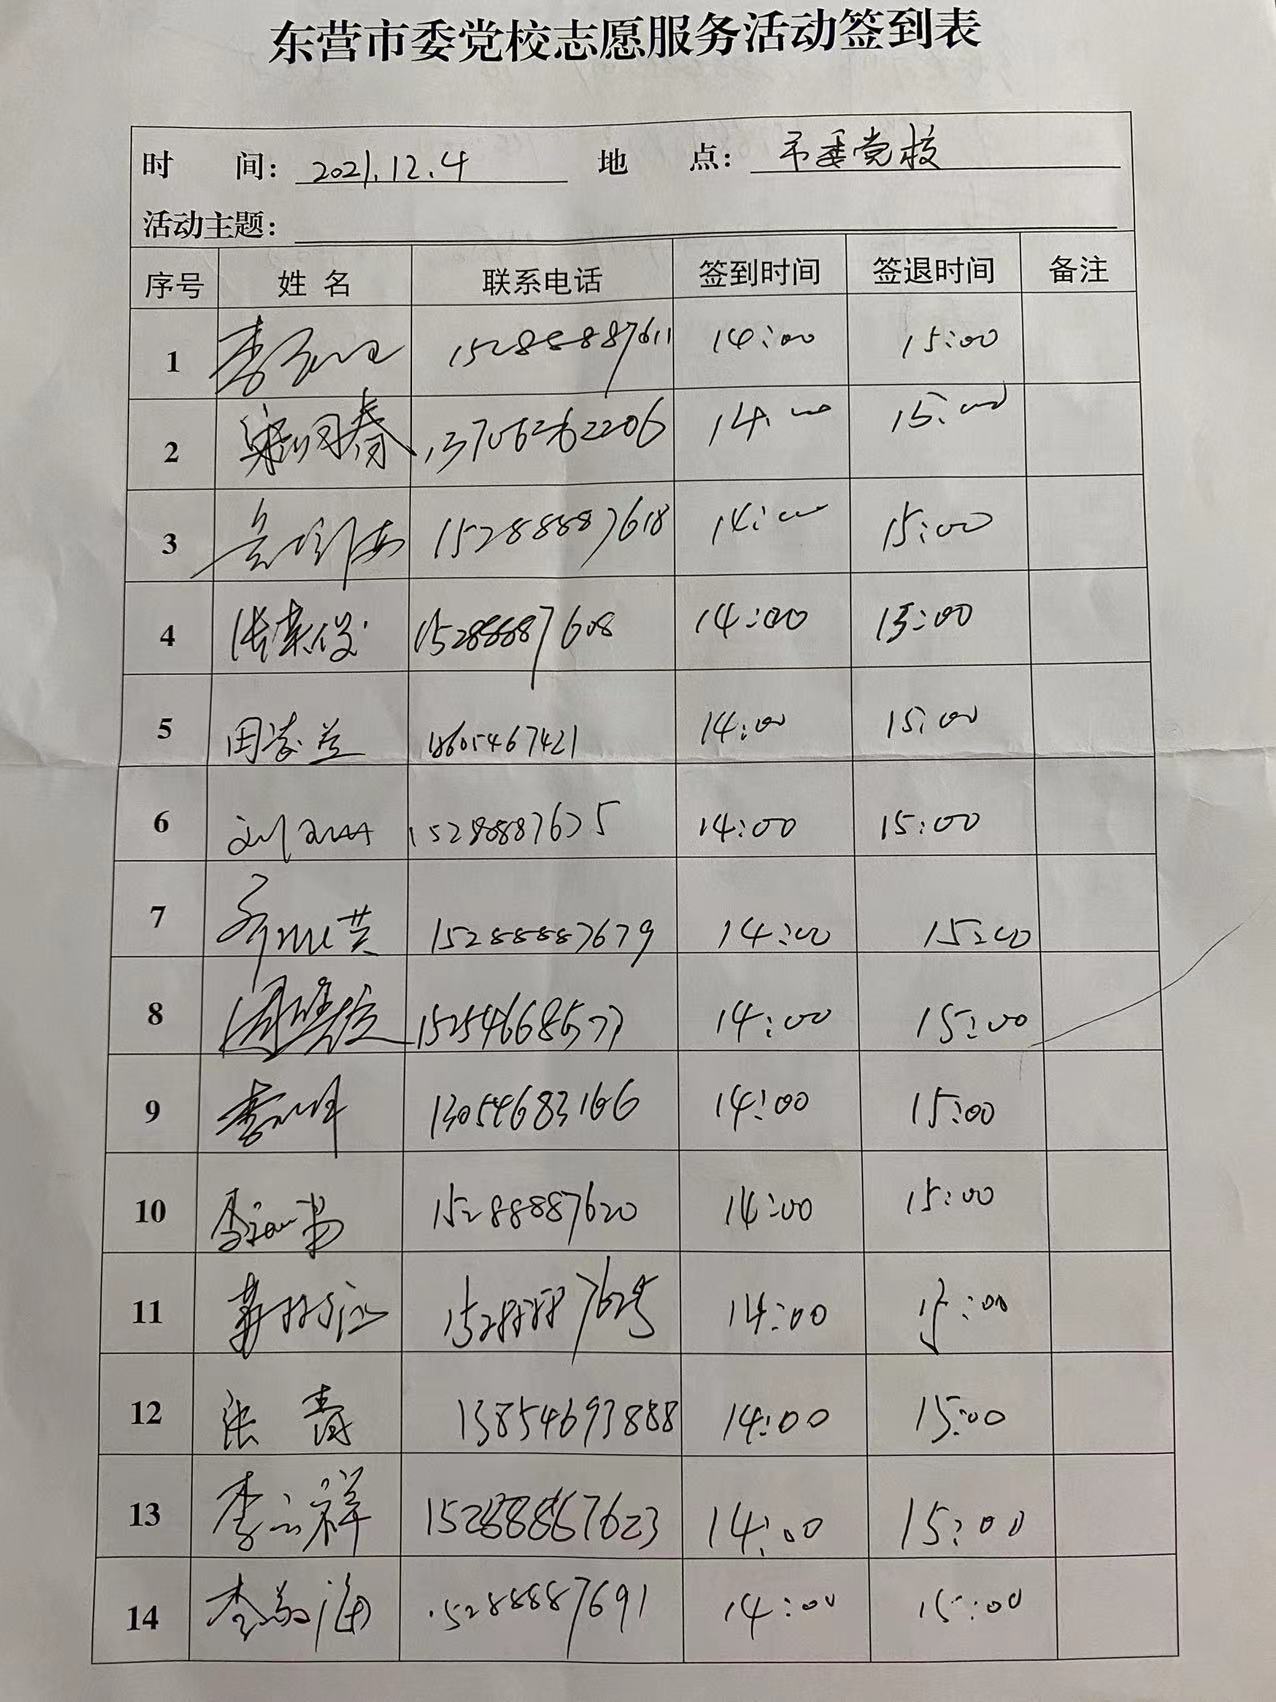 东营市委党校志愿服务活动签到表
时 间: 2021.12.4 地 点: 市委党校
活动主题:
序号 姓 名 联系电话 签到时间 签退时间 备注
1 15288887611 14:00 15:00
2 13706262206 14:00 15:00
3 15288887618 14:00 15:00
4 15288887608 14:00 15:00
5 14:00 15:00
6 15288887675 14:00 15:00
7 15288887679 14:00 15:00
8 14:00 15:00
9 13054683166 14:00 15:00
10 15288887620 14:00 15:00
11 14:00 15:00
12 张青 13854693888 14:00 15:00
13 李云祥 15288887623 14:00 15:00
14 15288887691 14:00 15:00